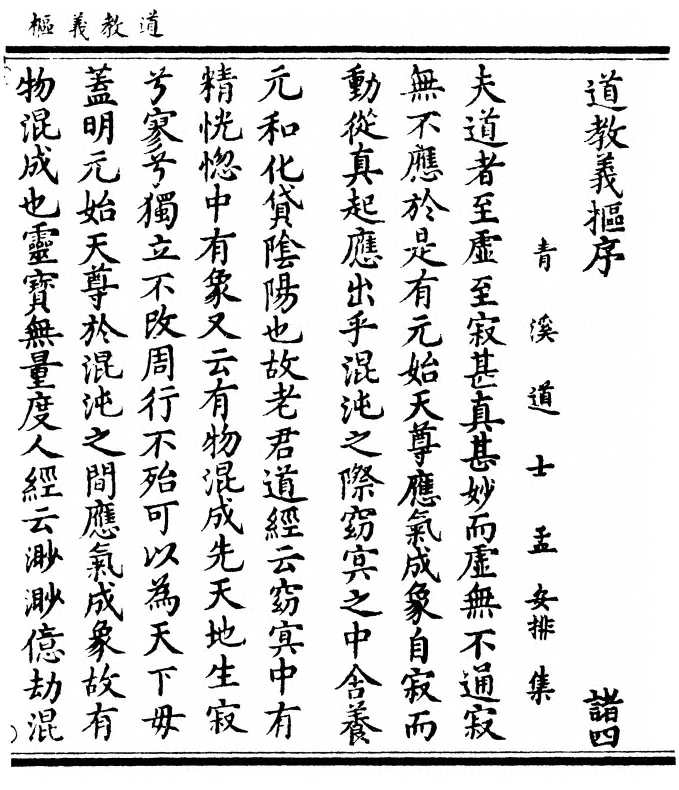 道教義樞
道教義樞序
諸四
青溪道士孟安排集
夫道者至虛至寂甚真甚妙而虛無不通寂
無不應於是有元始天尊應氣成象自寂而
動從真起應出乎混沌之際窈冥之中含養
元和化貸陰陽也故老君道經云窈冥中有
精恍惚中有象又云有物混成先天地生寂
兮寥兮獨立不改周行不殆可以為天下母
蓋明元始天尊於混沌之間應氣成象故有
物混成也靈寶無量度人經云渺渺億劫混